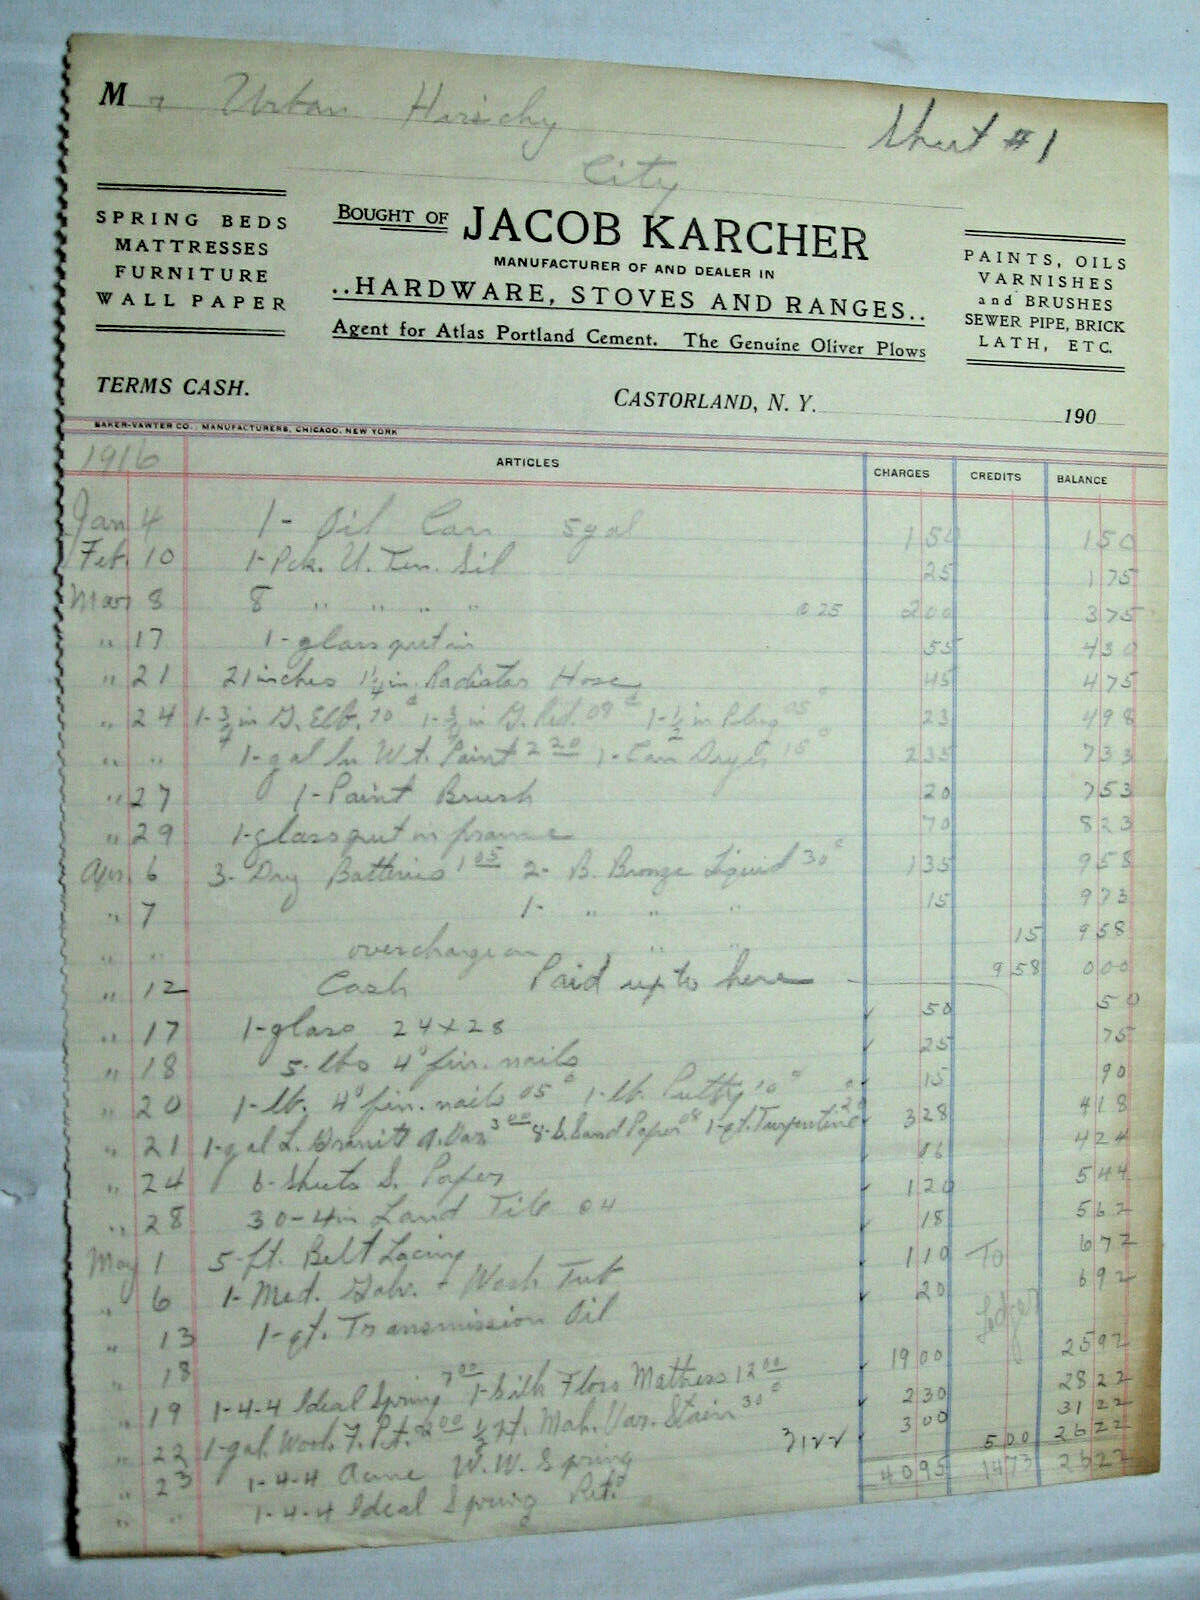 M r Urban Hirschy
Sheet #1
City
SPRING BEDS
MATTRESSES
FURNITURE
WALL PAPER
BOUGHT OF JACOB KARCHER
MANUFACTURER OF AND DEALER IN
..HARDWARE, STOVES AND RANGES..
Agent for Atlas Portland Cement. The Genuine Oliver Plows
PAINTS, OILS
VARNISHES
and BRUSHES
SEWER PIPE, BRICK
LATH, ETC.
TERMS CASH.
CASTORLAND, N. Y. 190
BAKER-VAWTER CO., MANUFACTURERS, CHICAGO, NEW YORK
1916 ARTICLES CHARGES CREDITS BALANCE
Jan 4 1- Oil Can 5 gal 1 50 1 50
Feb. 10 1- Pck. U. Ten. Sil 25 1 75
Mar 8 8 " " " " @ 25 2 00 3 75
" 17 1- glass put in 55 4 30
" 21 21 inches 1 1/4 in. Radiator Hose 45 4 75
" 24 1- 3/4 in G. Elb. 10¢ 1- 3/4 in G. Red. 09¢ 1- 1/2 in Plug 05¢ 23 4 98
" " 1- gal In Wt. Paint 2 20 1- Can Dryer 15¢ 2 35 7 33
" 27 1- Paint Brush 20 7 53
" 29 1- glass put in frame 70 8 23
Apr. 6 3- Dry Batteries 1 05 2- B. Bronze Liquid 30¢ 1 35 9 58
" 7 1- " " " 15 9 73
" " overcharge on " " 15 9 58
" 12 Cash Paid up to here 9 58 0 00
" 17 1- glass 24 x 28 50 50
" 18 5- lbs 4d fin. nails 25 75
" 20 1- lb. 4d fin. nails 05¢ 1- lb. Putty 10¢ 15 90
" 21 1- gal L. Granite A. Var. 3 00 8- S. Sand Paper 08 1- qt. Turpentine 20¢ 3 28 4 18
" 24 6- Sheets S. Paper 06 4 24
" 28 30- 4 in Land Tile 04 1 20 5 44
May 1 5- ft. Belt Lacing 18 5 62
" 6 1- Med. Galv. Wash Tub 1 10 To 6 72
" 13 1- qt. Transmission Oil 20 Ledger 6 92
" 18 1- 4-4 Ideal Spring 7 00 1- Silk Floss Mattress 12 00 19 00 25 92
" 19 1- gal. Work. F. Pt. 2 00 1/2 pt. Mah. Var. Stain 30¢ 2 30 28 22
" 22 1- 4-4 Acme W. W. Spring 3 00 31 22
" 23 1- 4-4 Ideal Spring Ret'd 5 00 26 22
" " 31 22 40 95 14 73 26 22